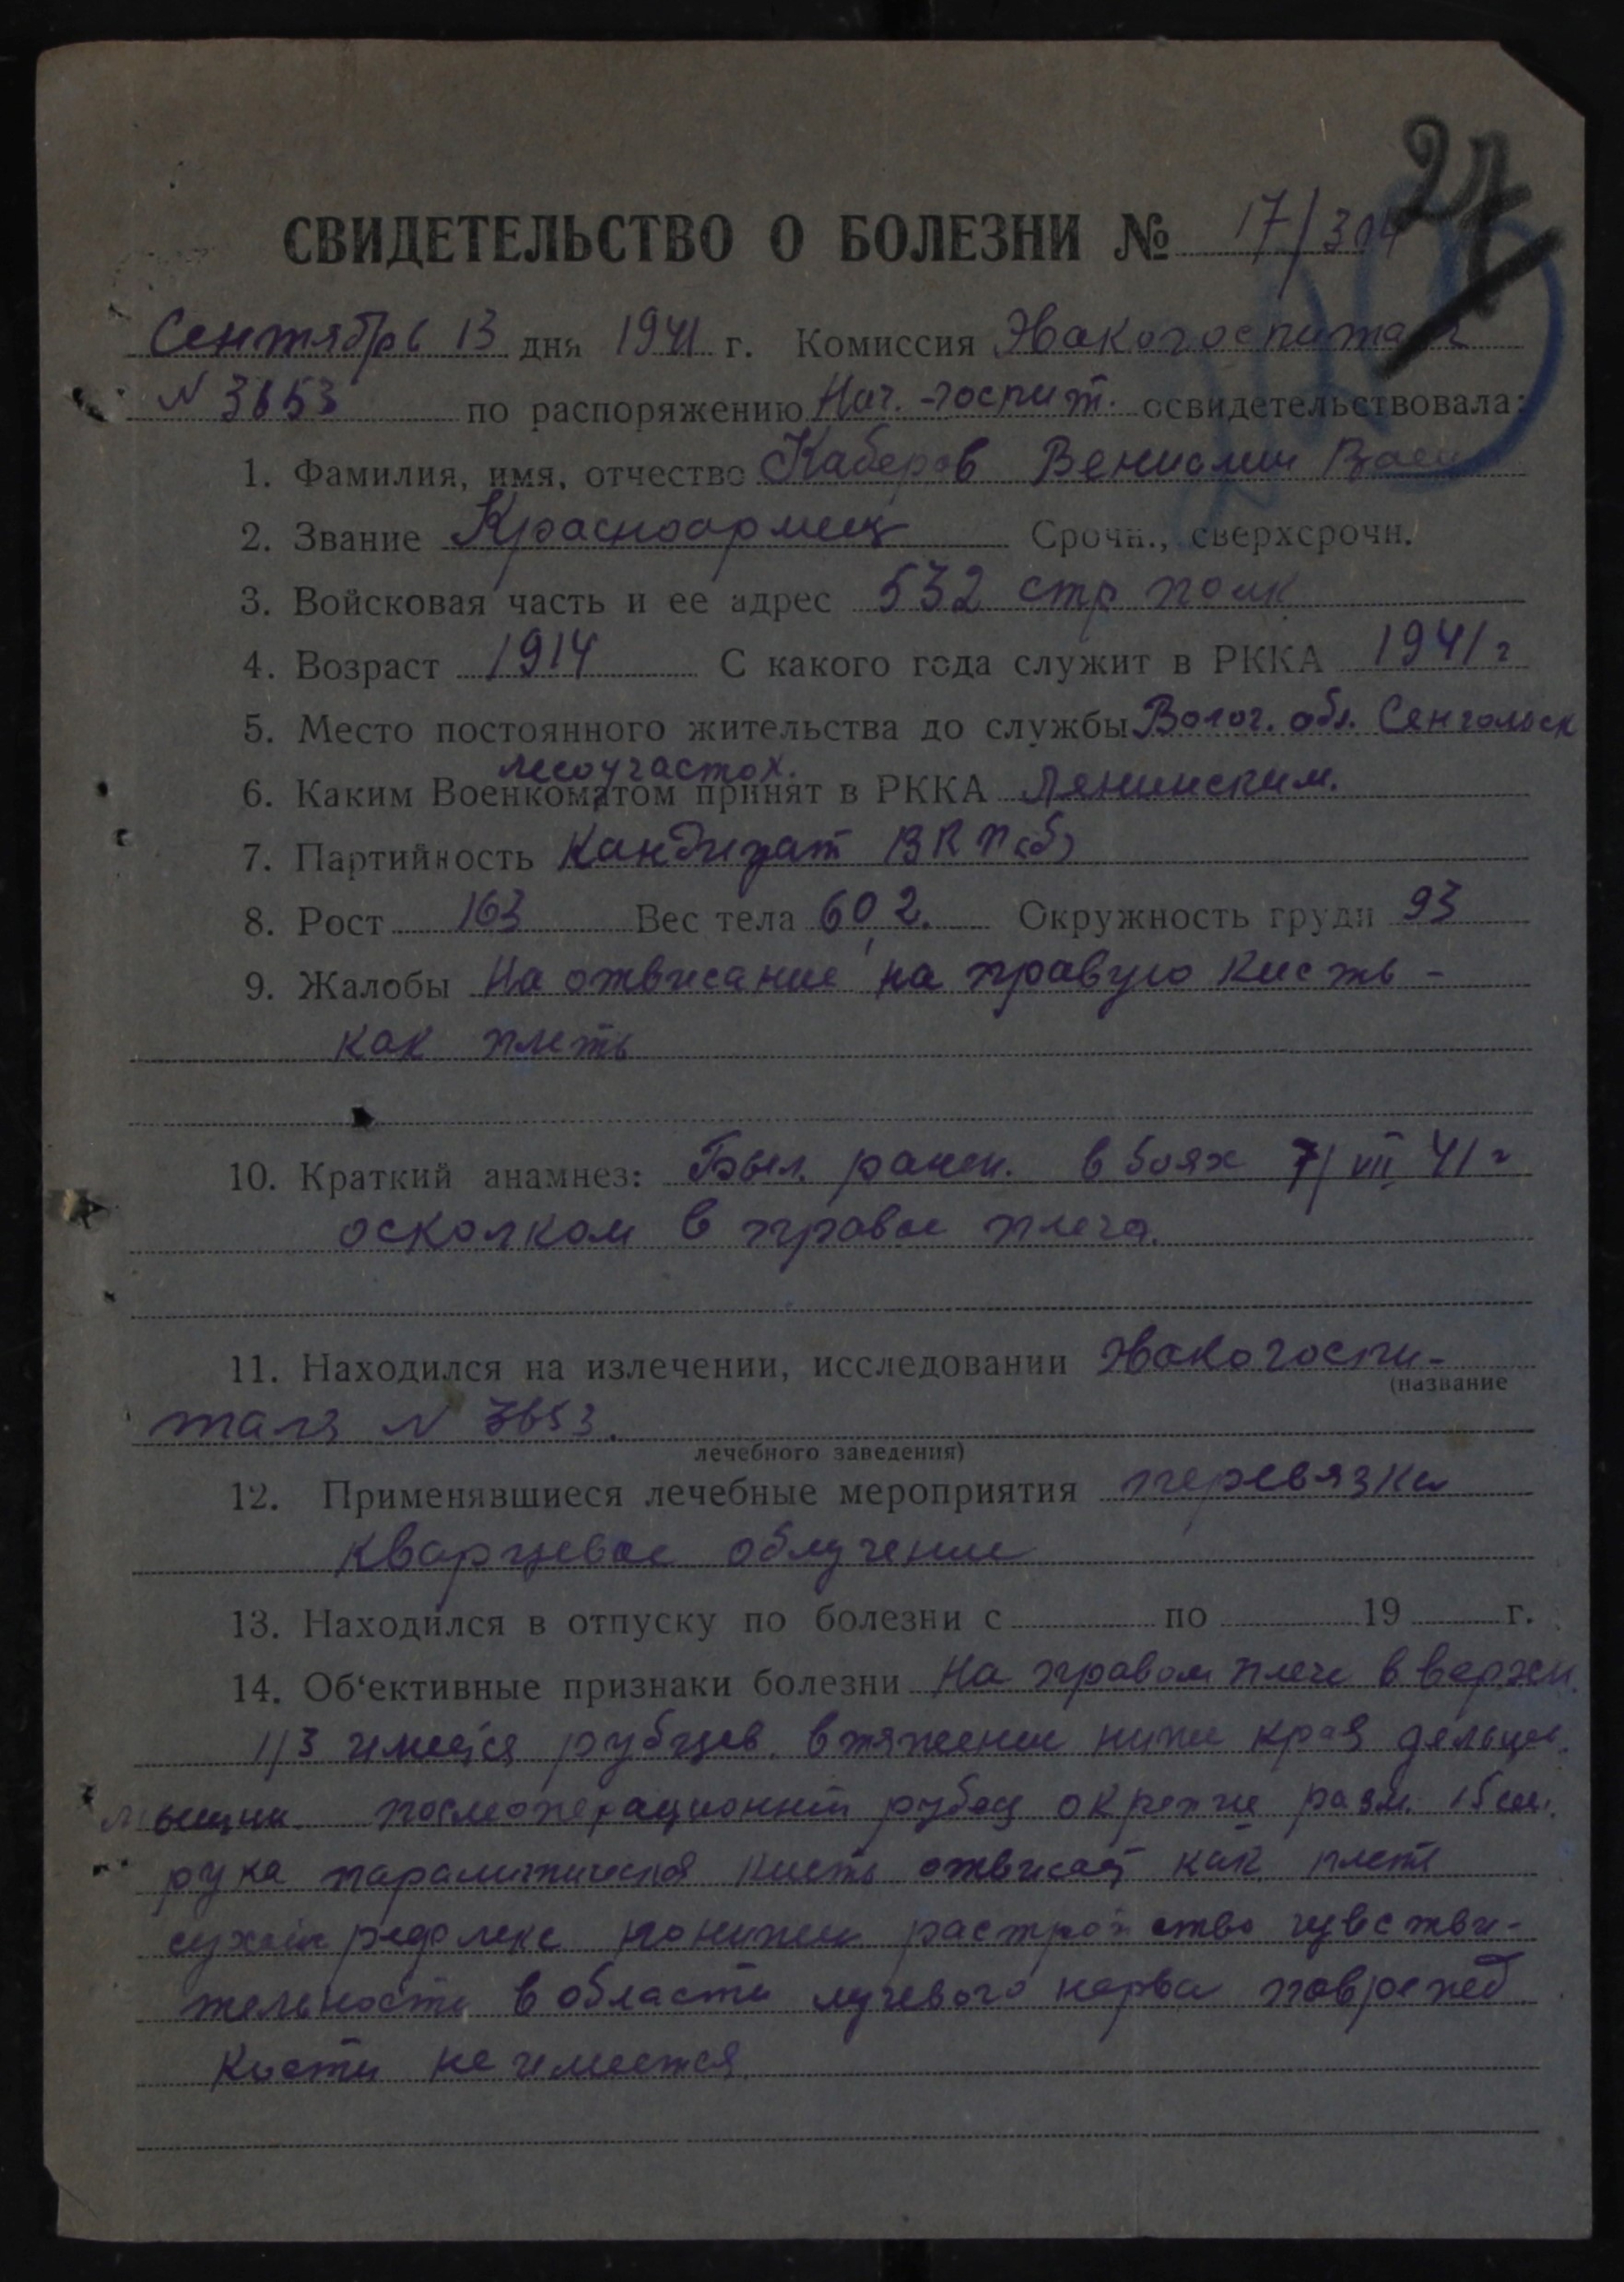 27
СВИДЕТЕЛЬСТВО О БОЛЕЗНИ № 17/304
Сентябрь 13 дня 1941 г. Комиссия Эвакогоспиталя
N 3653 по распоряжению Нач. госпит. освидетельствовала:
1. Фамилия, имя, отчество Каберов Вениамин
2. Звание Красноармеец Срочн., сверхсрочн.
3. Войсковая часть и ее адрес 532 стр полк
4. Возраст 1914 С какого года служит в РККА 1941 г
5. Место постоянного жительства до службы Волог. обл.
лесоучасток.
6. Каким Военкоматом принят в РККА Ленинским.
7. Партийность Кандидат ВКП(б)
8. Рост 163 Вес тела 60,2. Окружность груди 93
9. Жалобы На отвисание на правую кисть -
как плеть
10. Краткий анамнез: Был ранен. в боях 7/VII 41 г
осколком в правое плечо.
11. Находился на излечении, исследовании Эвакогоспи-
(название
таля N 3653.
лечебного заведения)
12. Применявшиеся лечебные мероприятия перевязки
кварцевое облучение
13. Находился в отпуску по болезни с по 19 г.
14. Об‘ективные признаки болезни На правом плече в верхн.
1/3 имеется рубцев. втяжение ниже края дельцев.
мышцы послеоперационный рубец окрепше разм. 15 см.
рука паралитическая кисть отвисает как плеть
рефлекс понижен растройство чувстви-
тельности в области лучевого нерва поврежд
кости не имеется.